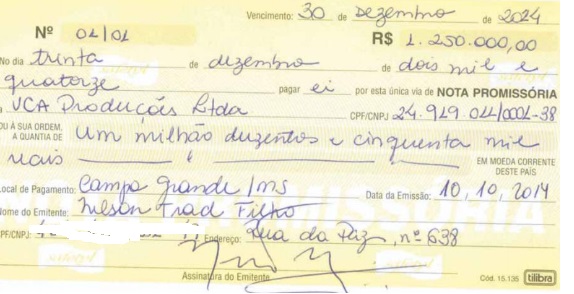 Vencimento: 30 de Dezembro de 2024
Nº 01/01 R$ 1.250.000,00
No dia trinta de dezembro de dois mil e
quatorze pagar ei por esta única via de NOTA PROMISSÓRIA
a VCA Produções Ltda CPF/CNPJ 24.949.011/0001-38
OU À SUA ORDEM, A QUANTIA DE um milhão duzentos e cinquenta mil
reais EM MOEDA CORRENTE DESTE PAÍS
Local de Pagamento: Campo Grande/MS Data da Emissão: 10, 10, 2014
Nome do Emitente: Nelson Trad Filho
CPF/CNPJ: Endereço: Rua da Paz, nº 638
Assinatura do Emitente Cód. 15.135 tilibra